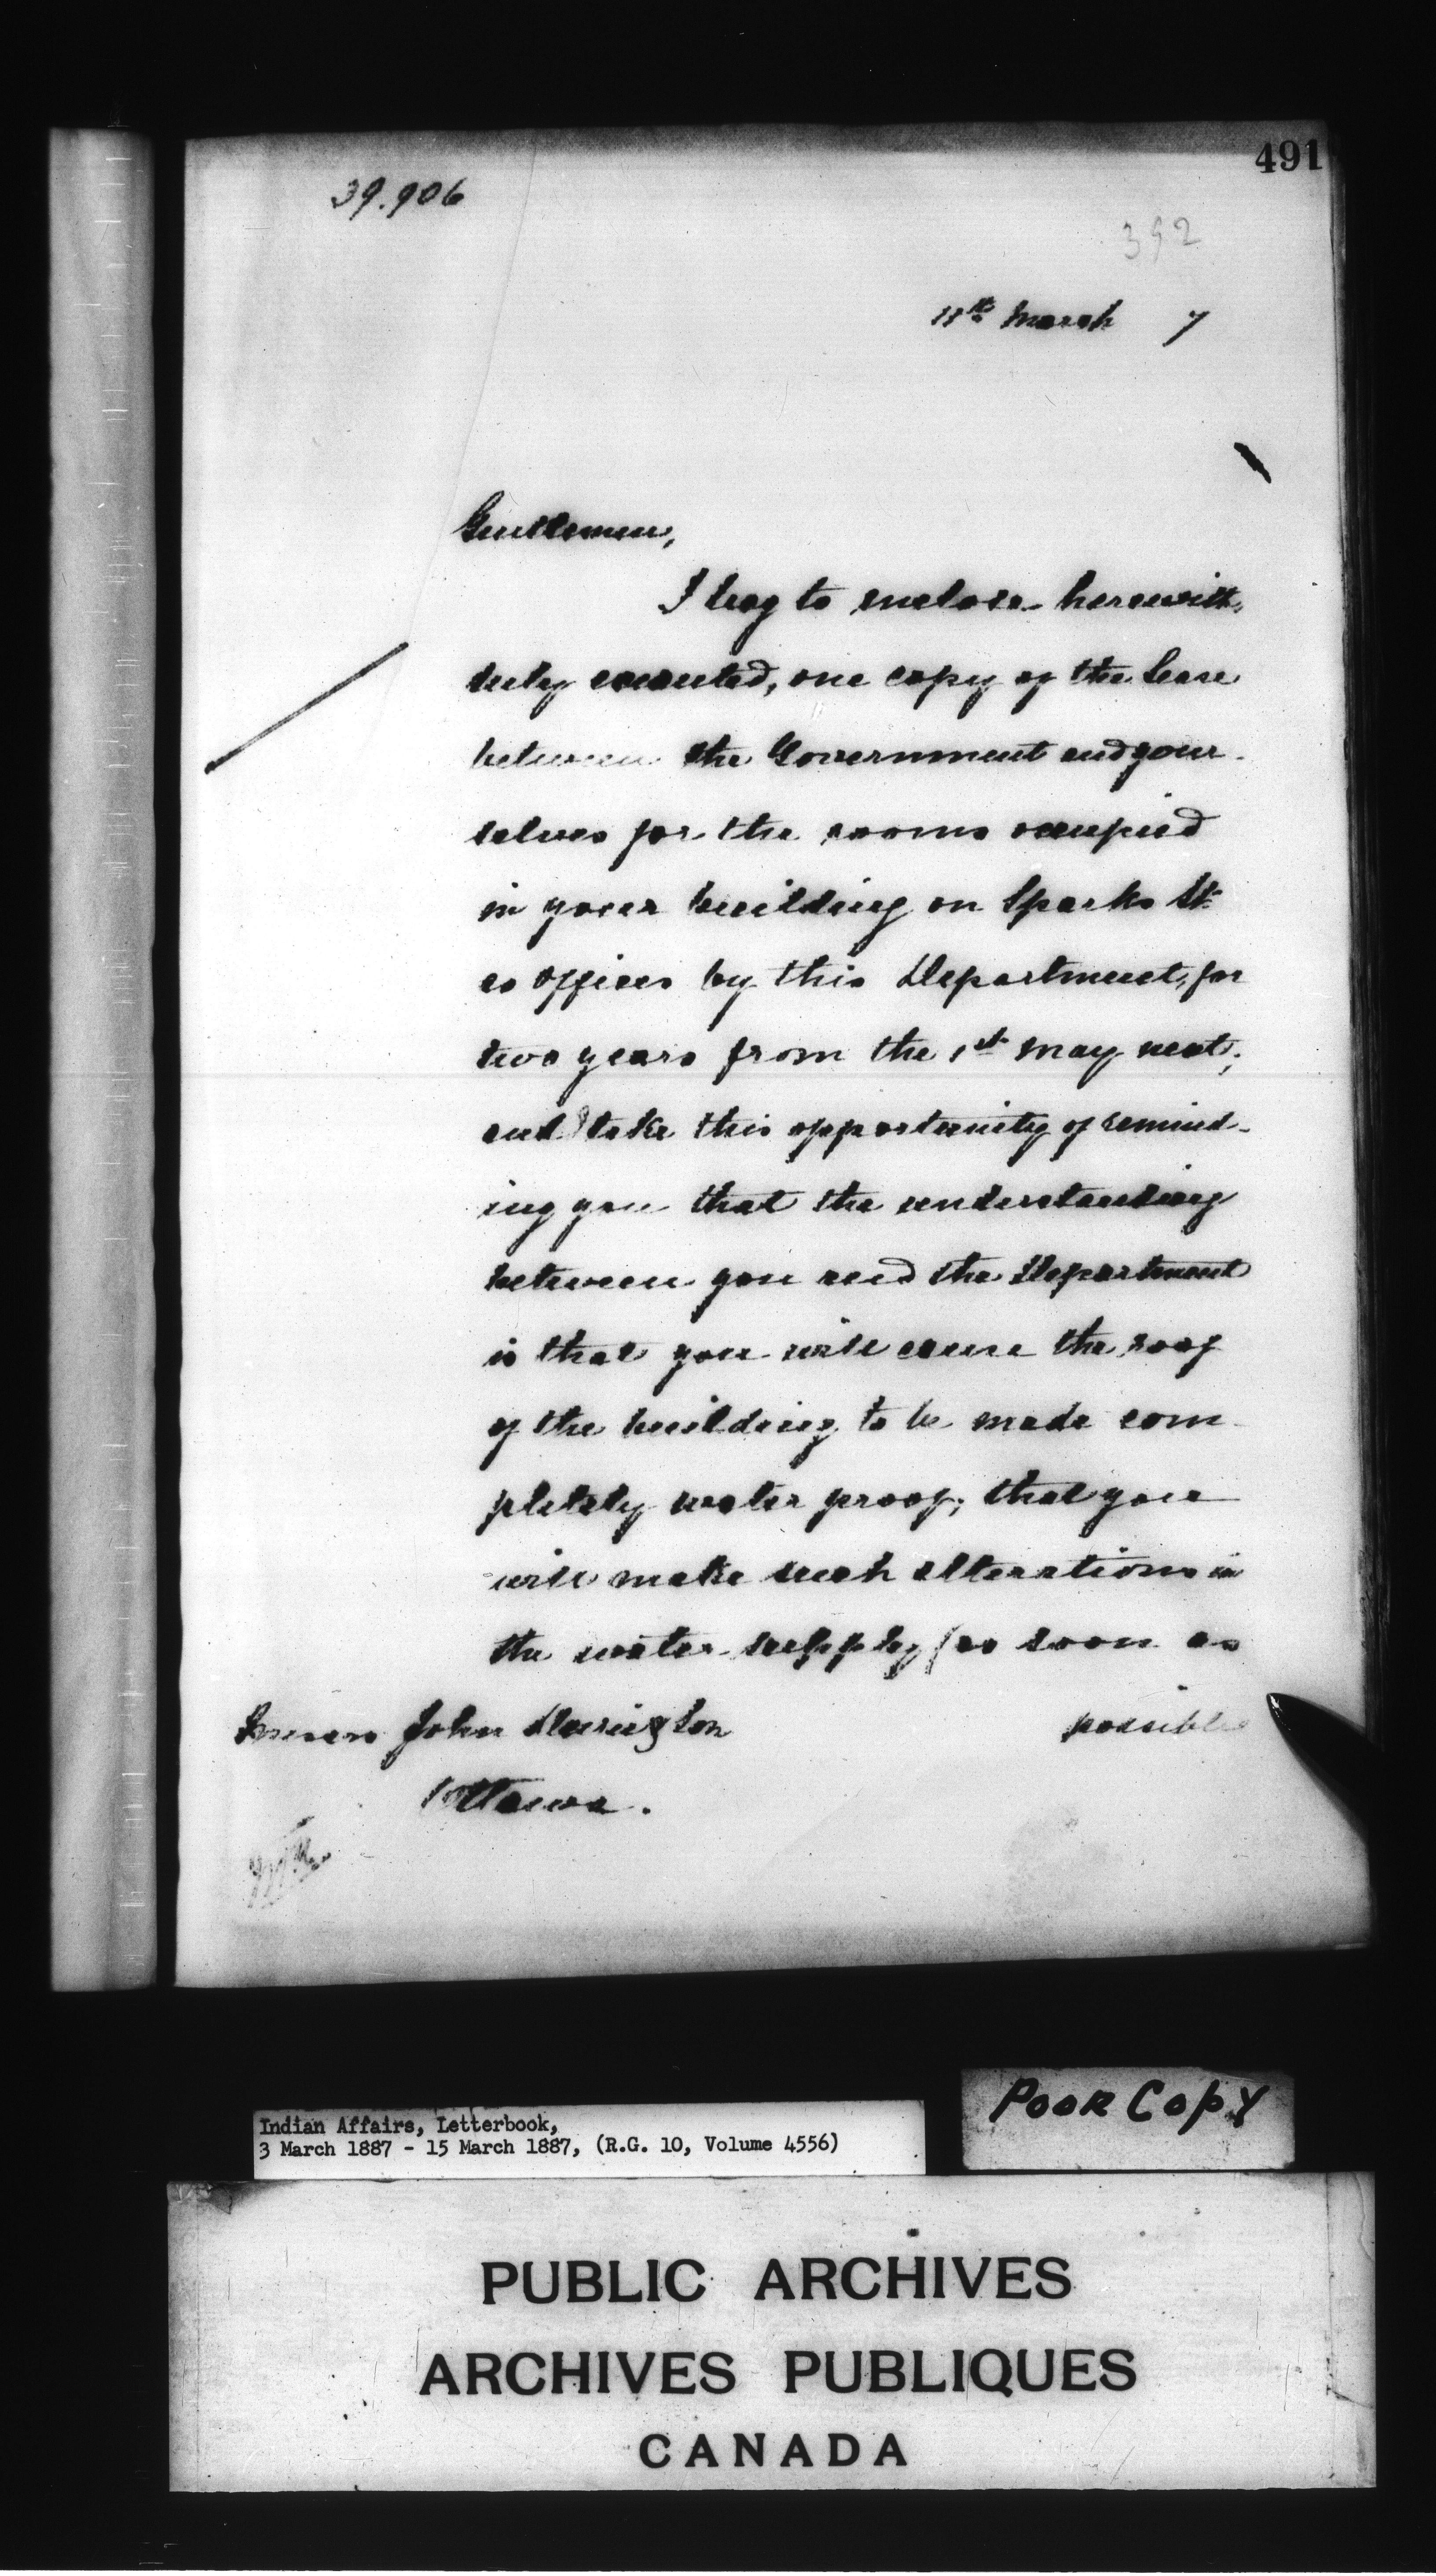 491
39.906
392
11th March 7
Gentlemen,
I beg to enclose herewith,
duly executed, one copy of the Lease
between the Government and your-
selves for the rooms occupied
in your building on Sparks St
as offices by this Department, for
two years from the 1st May next;
and I take this opportunity of remind-
ing you that the understanding
between you and the Department
is that you will cause the roof
of the building to be made com-
pletely water proof; that you
will make such alterations in
the water supply (as soon as
possible
Messrs John & Son
Ottawa.
Indian Affairs, Letterbook,
3 March 1887 - 15 March 1887, (R.G. 10, Volume 4556)
Poor Copy
PUBLIC ARCHIVES
ARCHIVES PUBLIQUES
CANADA